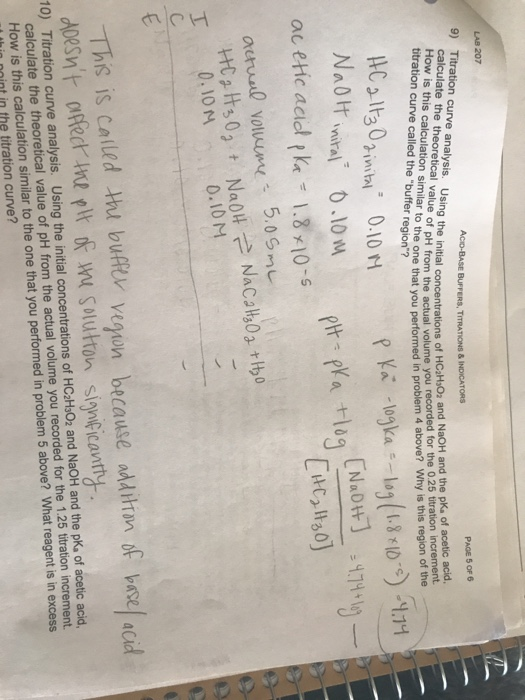 LAB 207 ACID-BASE BUFFERS, TITRATIONS & INDICATORS PAGE 5 OF 6
9) Titration curve analysis. Using the initial concentrations of HC2H3O2 and NaOH and the pKa of acetic acid,
calculate the theoretical value of pH from the actual volume you recorded for the 0.25 titration increment.
How is this calculation similar to the one that you performed in problem 4 above? Why is this region of the
titration curve called the "buffer region"?
HC2H3O2 initial = 0.10 M
pKa = -logKa = -log(1.8×10^-5) = 4.74
NaOH initial = 0.10 M
pH = pKa + log [NaOH] / [HC2H3O] = 4.74 + log —
acetic acid pKa = 1.8×10^-5
actual volume = 5.05 mL
HC2H3O2 + NaOH ⇌ NaC2H3O2 + H2O
I 0.10M 0.10M - -
C
E
This is called the buffer region because addition of base/acid
doesn't affect the pH of the solution significantly.
10) Titration curve analysis. Using the initial concentrations of HC2H3O2 and NaOH and the pKa of acetic acid,
calculate the theoretical value of pH from the actual volume you recorded for the 1.25 titration increment.
How is this calculation similar to the one that you performed in problem 5 above? What reagent is in excess
point in the titration curve?